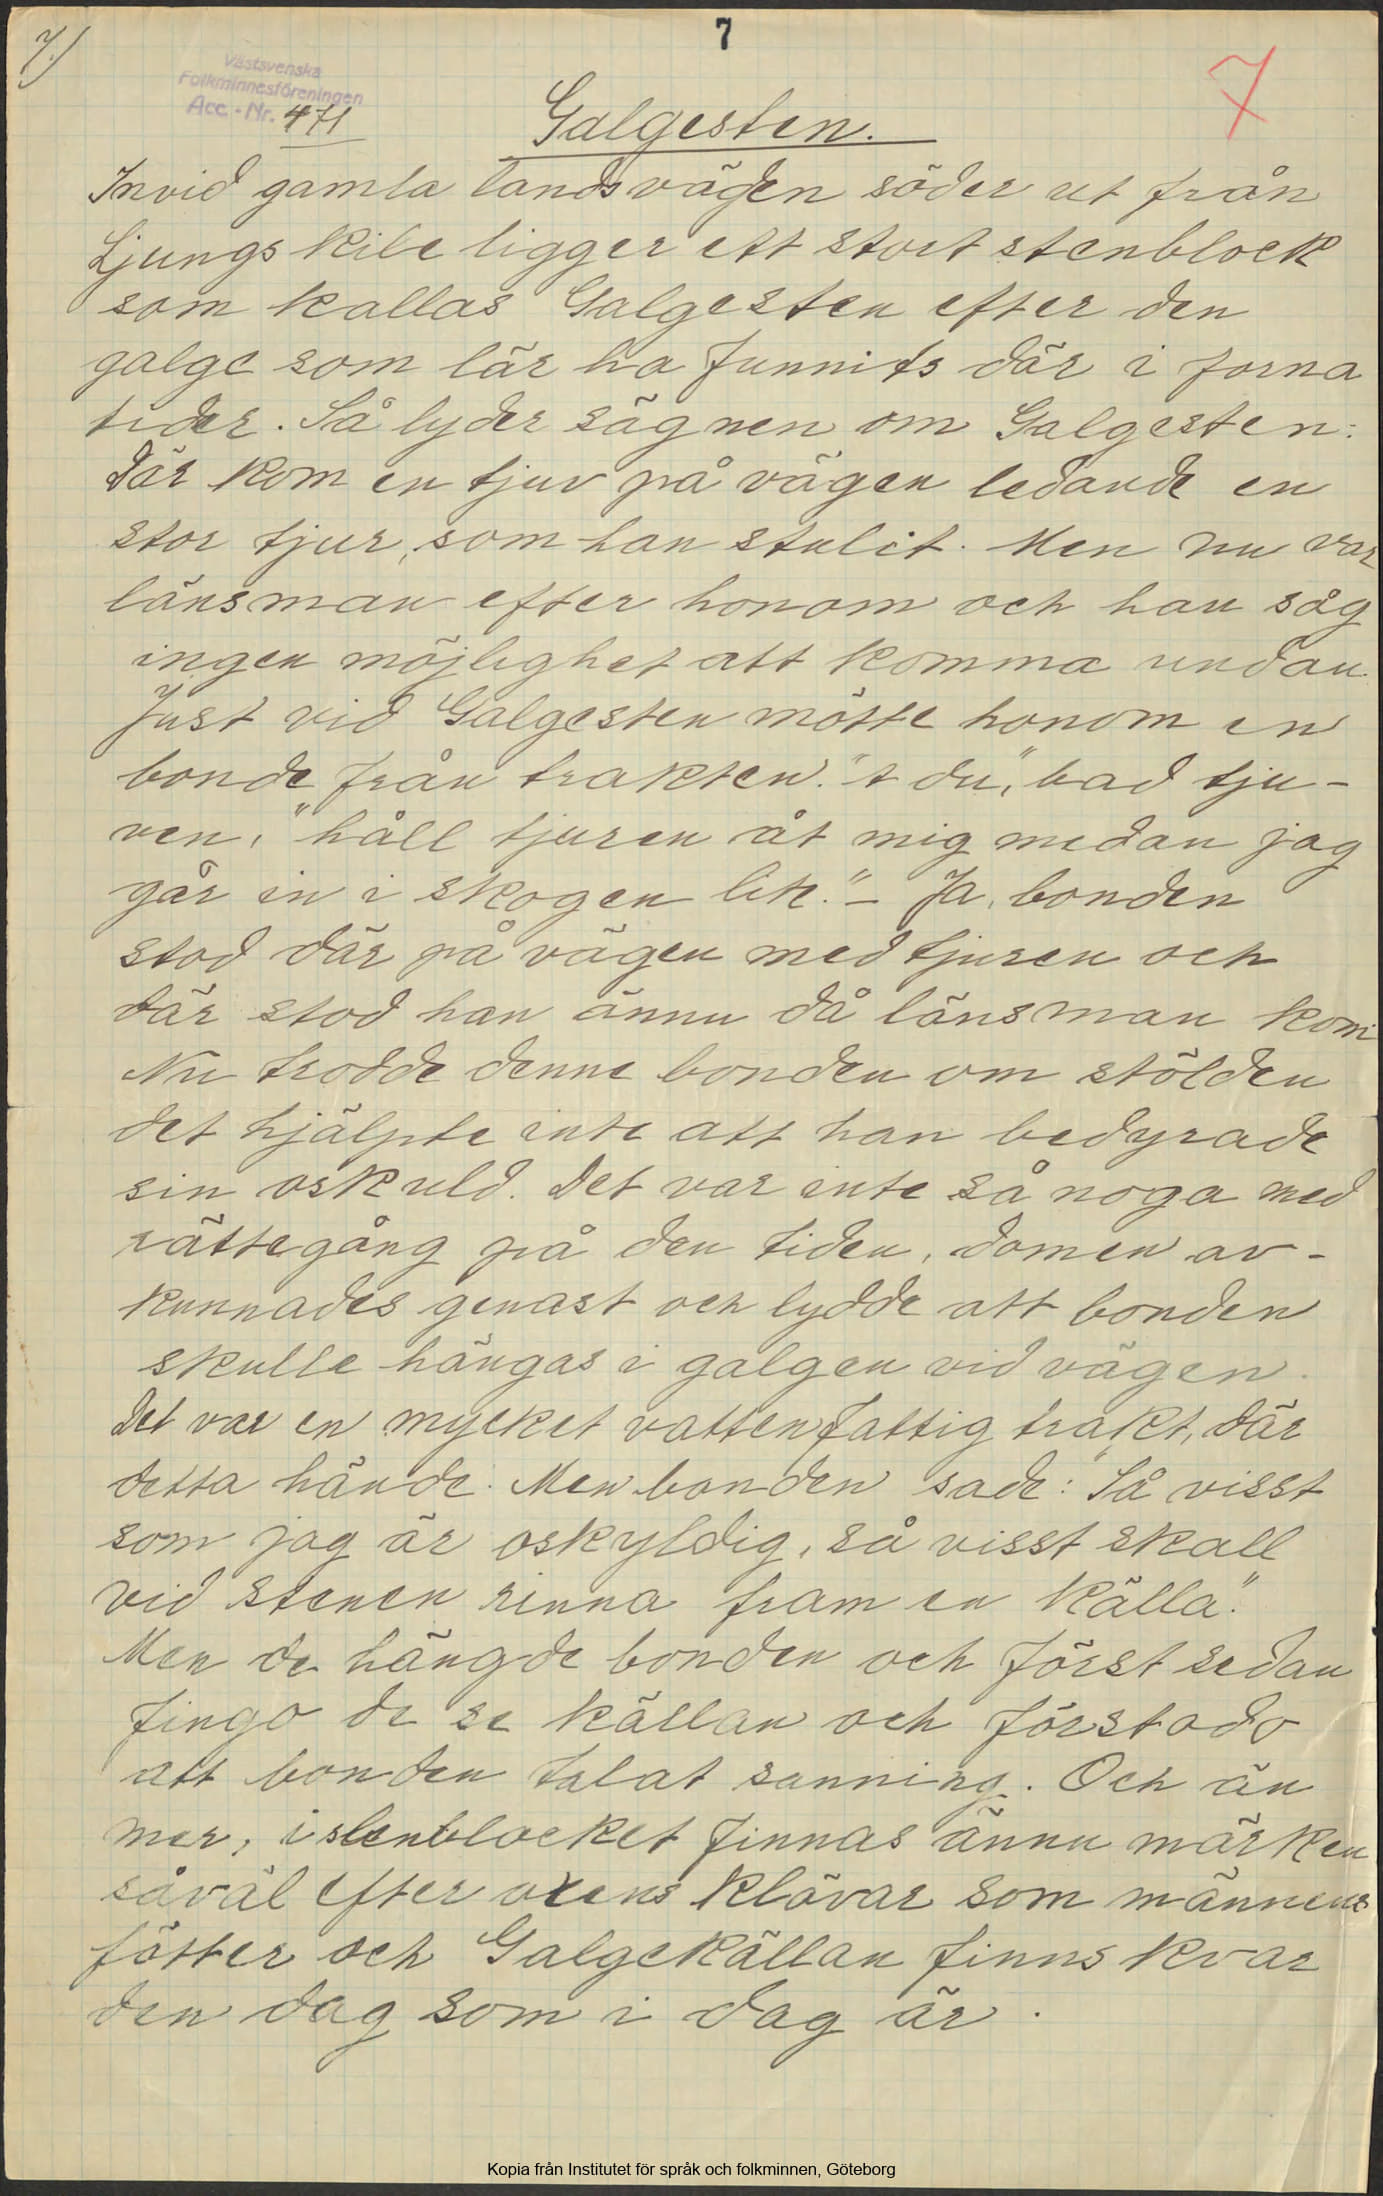 7
7.)
7
Västsvenska
Folkminnesföreningen
Acc.-Nr. 471
Galgesten.
Invid gamla landsvägen söder ut från
Ljungskile ligger ett stort stenblock
som kallas Galgesten efter den
galge som lär ha funnits där i forna
tider. Så lyder sägnen om Galgesten:
Där kom en tjuv på vägen ledande en
stor tjur, som han stulit. Men nu var
länsman efter honom och han såg
ingen möjlighet att komma undan.
Just vid Galgesten mötte honom en
bonde från trakten. "t du", bad tju-
ven, "håll tjuren åt mig medan jag
går in i skogen lite." – Ja, bonden
stod där på vägen med tjuren och
där stod han ännu då länsman kom
Nu trodde denne bonden om stölden
det hjälpte inte att han bedyrade
sin oskuld. Det var inte så noga med
rättegång på den tiden, domen av-
kunnades genast och lydde att bonden
skulle hängas i galgen vid vägen.
Det var en mycket vattenfattig trakt, där
detta hände. Men bonden sade: "Så visst
som jag är oskyldig, så visst skall
vid stenen rinna fram en källa."
Men de hängde bonden och först sedan
fingo de se källan och förstodo
att bonden talat sanning. Och än
mer, i stenblocket finnas ännu märken
såväl efter oxens klövar som männens
fötter och Galgekällan finns kvar
den dag som i dag är.
Kopia från Institutet för språk och folkminnen, Göteborg